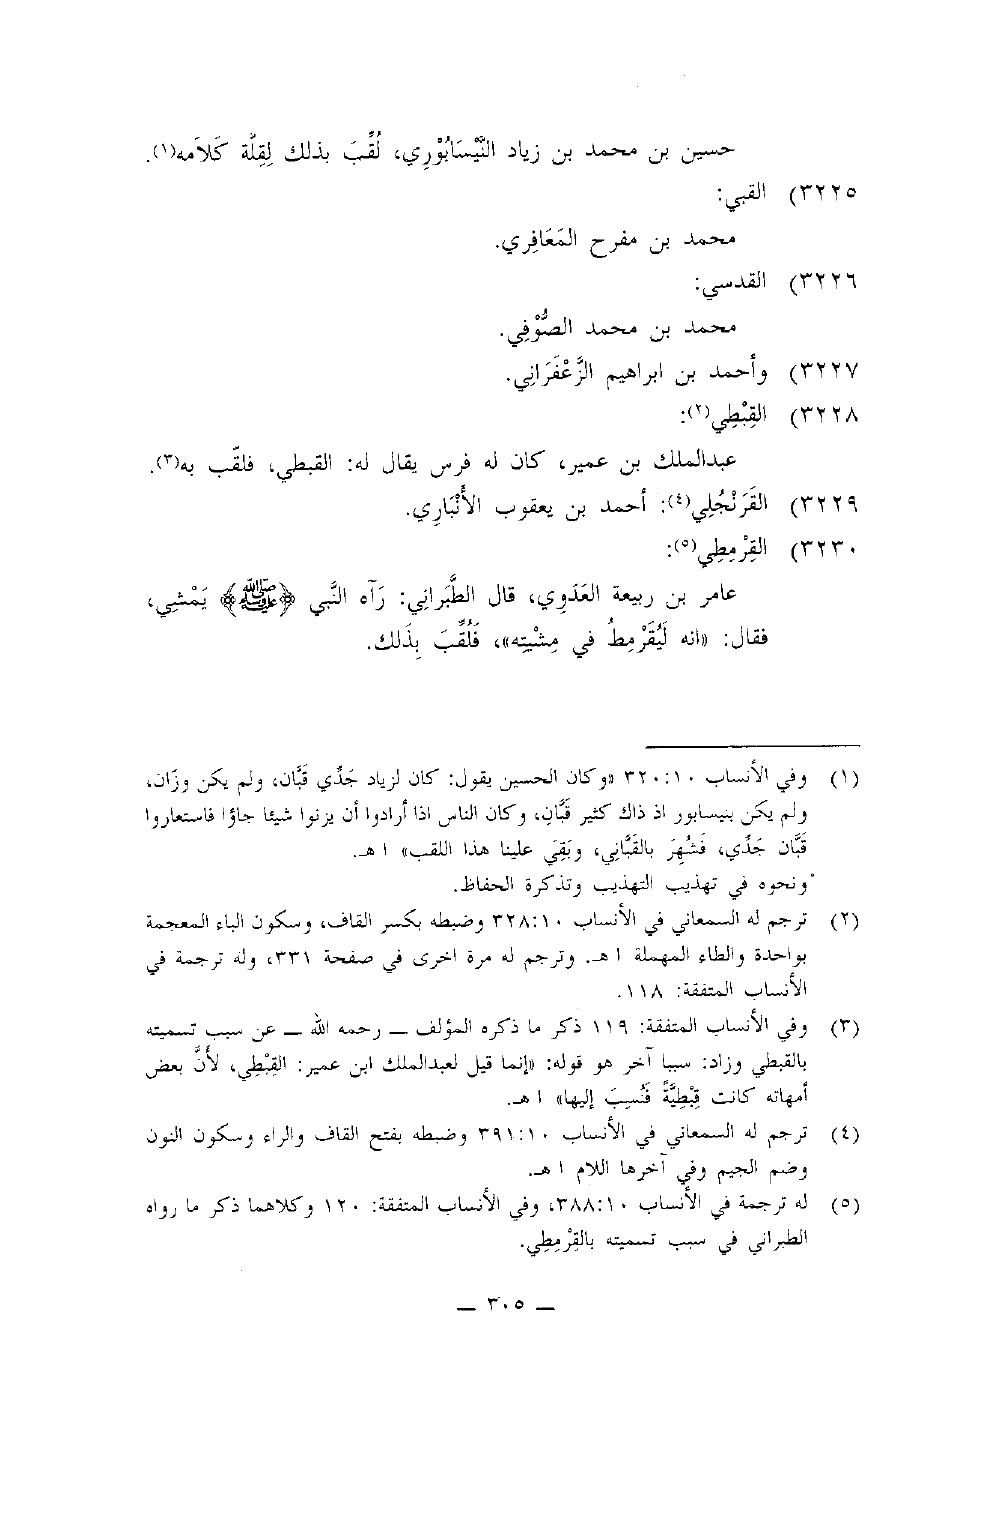 حسين بن محمد بن زياد النَّيْسَابُوْرِي، لُقِّبَ بذلك لِقِلَّة كَلاَمه(١).
٣٢٢٥) القبي:
محمد بن مفرح المَعَافِري.
٣٢٢٦) القدسي:
محمد بن محمد الصُّوْفِي.
٣٢٢٧) وأحمد بن ابراهيم الزَّعْفَرَانِي.
٣٢٢٨) القِبْطِي(٢):
عبدالملك بن عمير، كان له فرس يقال له: القبطي، فلقّب به(٣).
٣٢٢٩) القَرَنْجُلِي(٤): أحمد بن يعقوب الأَنْبَارِي.
٣٢٣٠) القِرْمِطِي(٥):
عامر بن ربيعة العَدَوِي، قال الطَّبَرانِي: رَآه النَّبي ﴿ﷺ﴾ يَمْشِي،
فقال: «انه لَيُقَرْمِطُ في مِشْيَتِه»، فَلُقِّبَ بِذَلك.
(١) وفي الأنساب ٣٢٠:١٠ «وكان الحسين يقول: كان لزياد جَدِّي قَبَّان، ولم يكن وزّان،
ولم يكن بنيسابور اذ ذاك كثير قَبَّانِ، وكان الناس اذا أرادوا أن يزنوا شيئا جاؤا فاستعاروا
قَبَّان جَدِّي، فَشُهِرَ بالقَبَّانِي، وبَقِيَ علينا هذا اللقب» ا هـ.
ونحوه في تهذيب التهذيب وتذكرة الحفاظ.
(٢) ترجم له السمعاني في الأنساب ٣٢٨:١٠ وضبطه بكسر القاف، وسكون الباء المعجمة
بواحدة والطاء المهملة ا هـ. وترجم له مرة اخرى في صفحة ٣٣١، وله ترجمة في
الأنساب المتفقة: ١١٨.
(٣) وفي الأنساب المتفقة: ١١٩ ذكر ما ذكره المؤلف ــ رحمه الله ــ عن سبب تسميته
بالقبطي وزاد: سببا آخر هو قوله: «إنما قيل لعبدالملك ابن عمير: القِبْطِي، لأَنَّ بعض
أمهاته كانت قِبْطِيَّةً فَنُسِبَ إليها» ا هـ.
(٤) ترجم له السمعاني في الأنساب ٣٩١:١٠ وضبطه بفتح القاف والراء وسكون النون
وضم الجيم وفي آخرها اللام ا هـ.
(٥) له ترجمة في الأنساب ٣٨٨:١٠، وفي الأنساب المتفقة: ١٢٠ وكلاهما ذكر ما رواه
الطبراني في سبب تسميته بالقِرْمِطِي.
ــ ٣٠٥ ــ